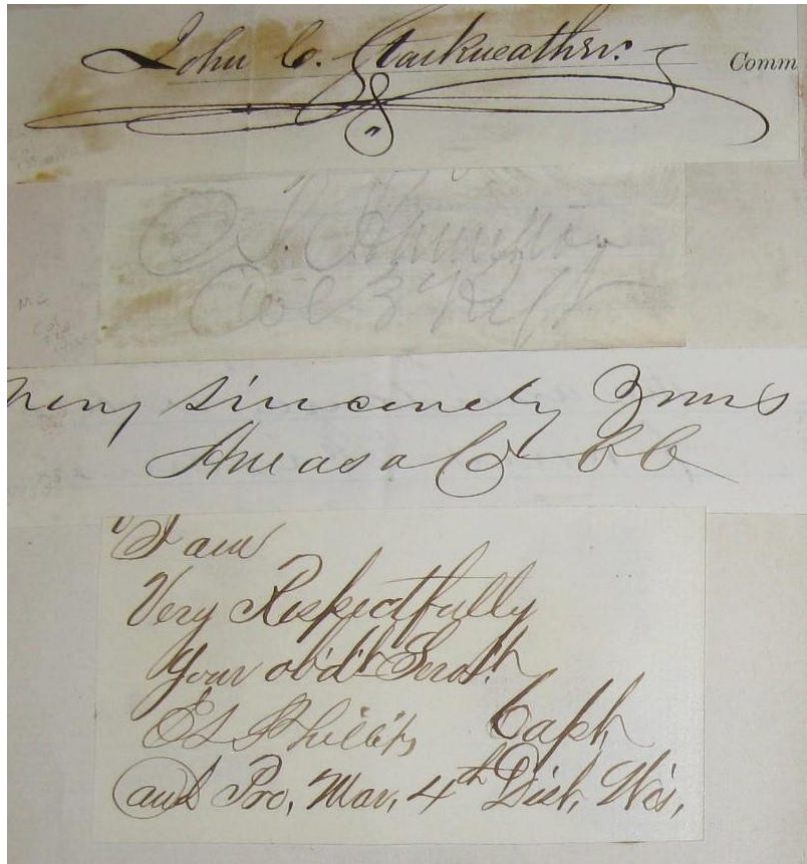 John C. Starkweather. Comm
Col 3d Regt
Very Sincerely Yours
Amasa Cobb
I am
Very Respectfully
Your ob'd't Serv't
E L Phillips Capt
and Pro, Mar, 4th Dist, Wis,